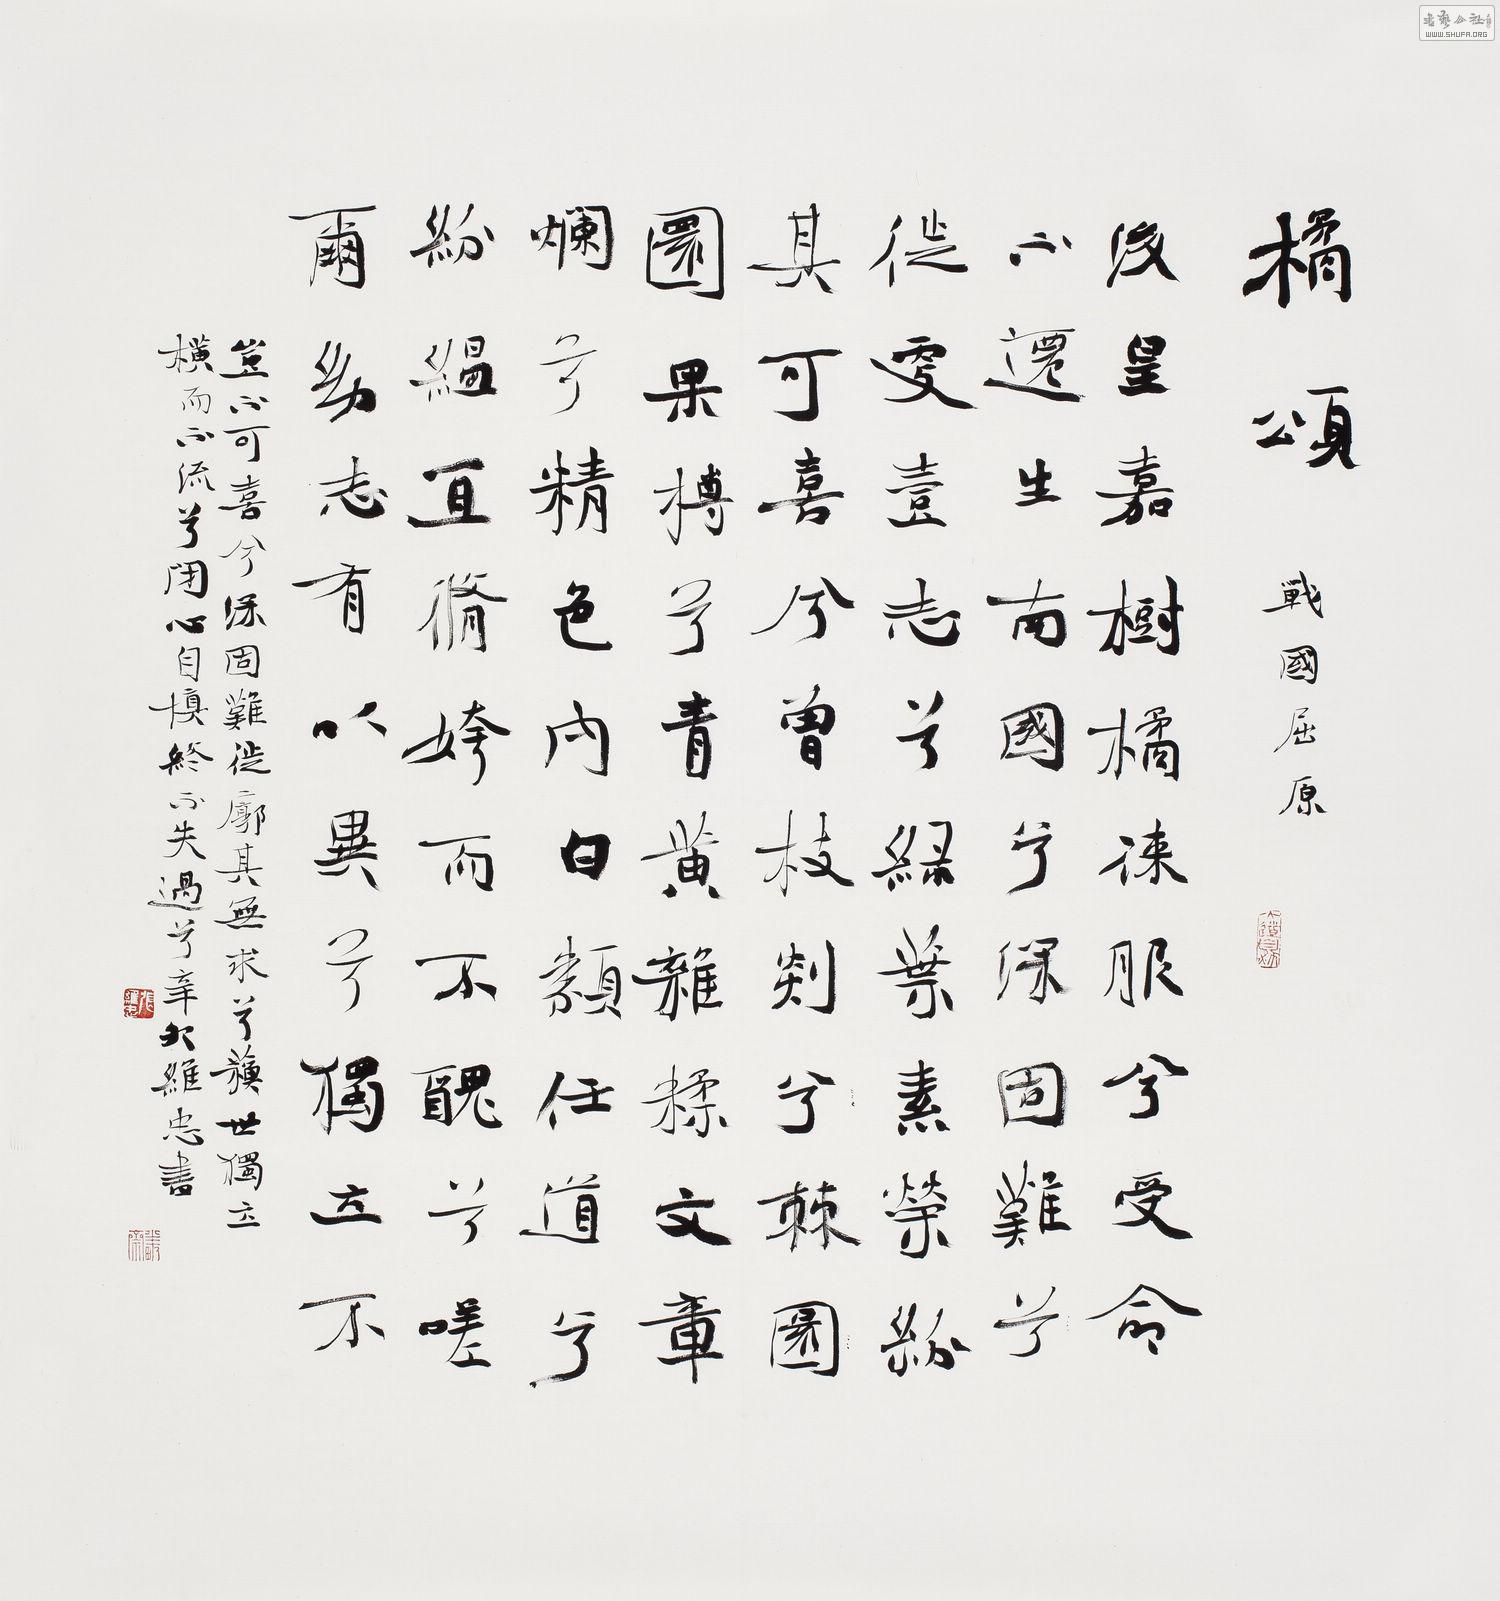 橘頌 戰國屈原
後皇嘉樹橘徠服兮受命
不遷生南國兮深固難兮
徙更壹志兮綠葉素榮紛
其可喜兮曾枝剡兮棘圜
圜果榑兮青黃雜糅文章
爛兮精色內白類任道兮
紛縕宜脩姱而不醜兮嗟
爾幼志有以異兮獨立不
豈不可喜兮深固難徙廓其無求兮蘇世獨立
橫而不流兮閉心自慎終不失過兮辛卯維忠書
書藝公社
WWW.SHUFA.ORG